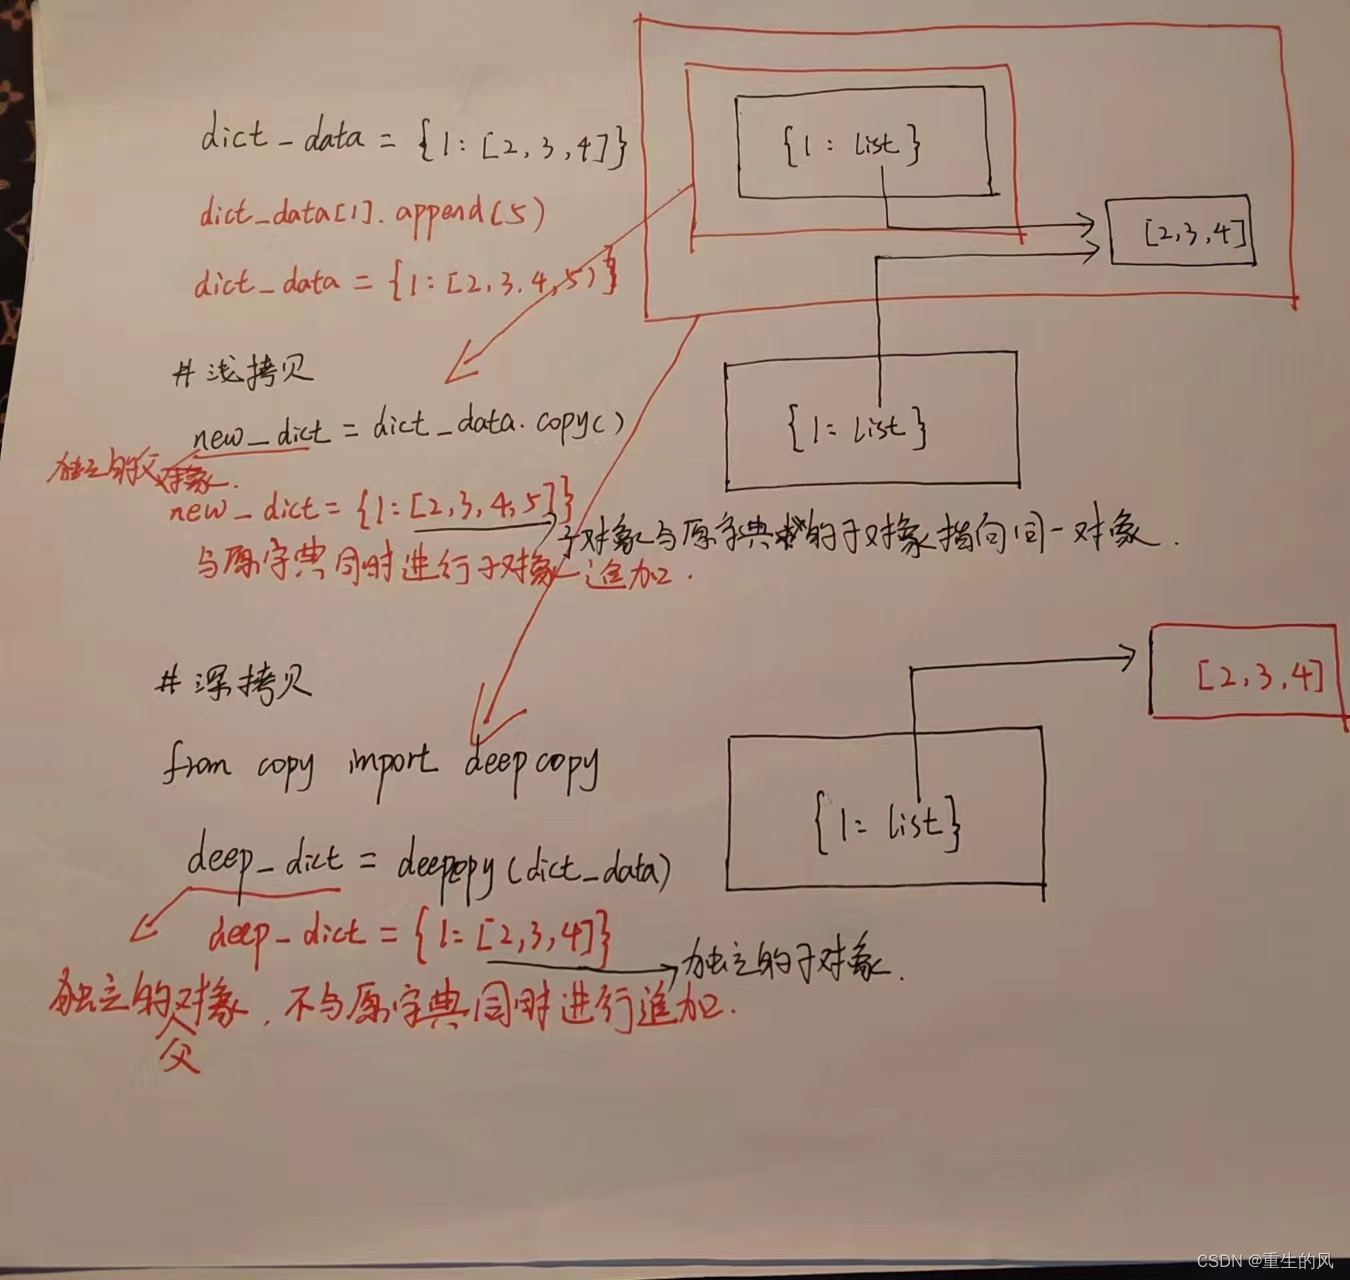 dict_data = {1: [2,3,4]}
dict_data[1].append(5)
dict_data = {1: [2,3,4,5)}
{1: list}
[2,3,4]
#浅拷贝
new_dict = dict_data.copy()
独立的父对象.
new_dict = {1: [2,3,4,5]}
{1= list}
子对象与原字典的子对象指向同一对象.
与原字典同时进行子对象追加.
#深拷贝
from copy import deepcopy
[2,3,4]
{1= list}
deep_dict = deepcopy(dict_data)
deep_dict = {1= [2,3,4]}
独立的子对象.
独立的父对象,不与原字典同时进行追加.
CSDN @重生的风